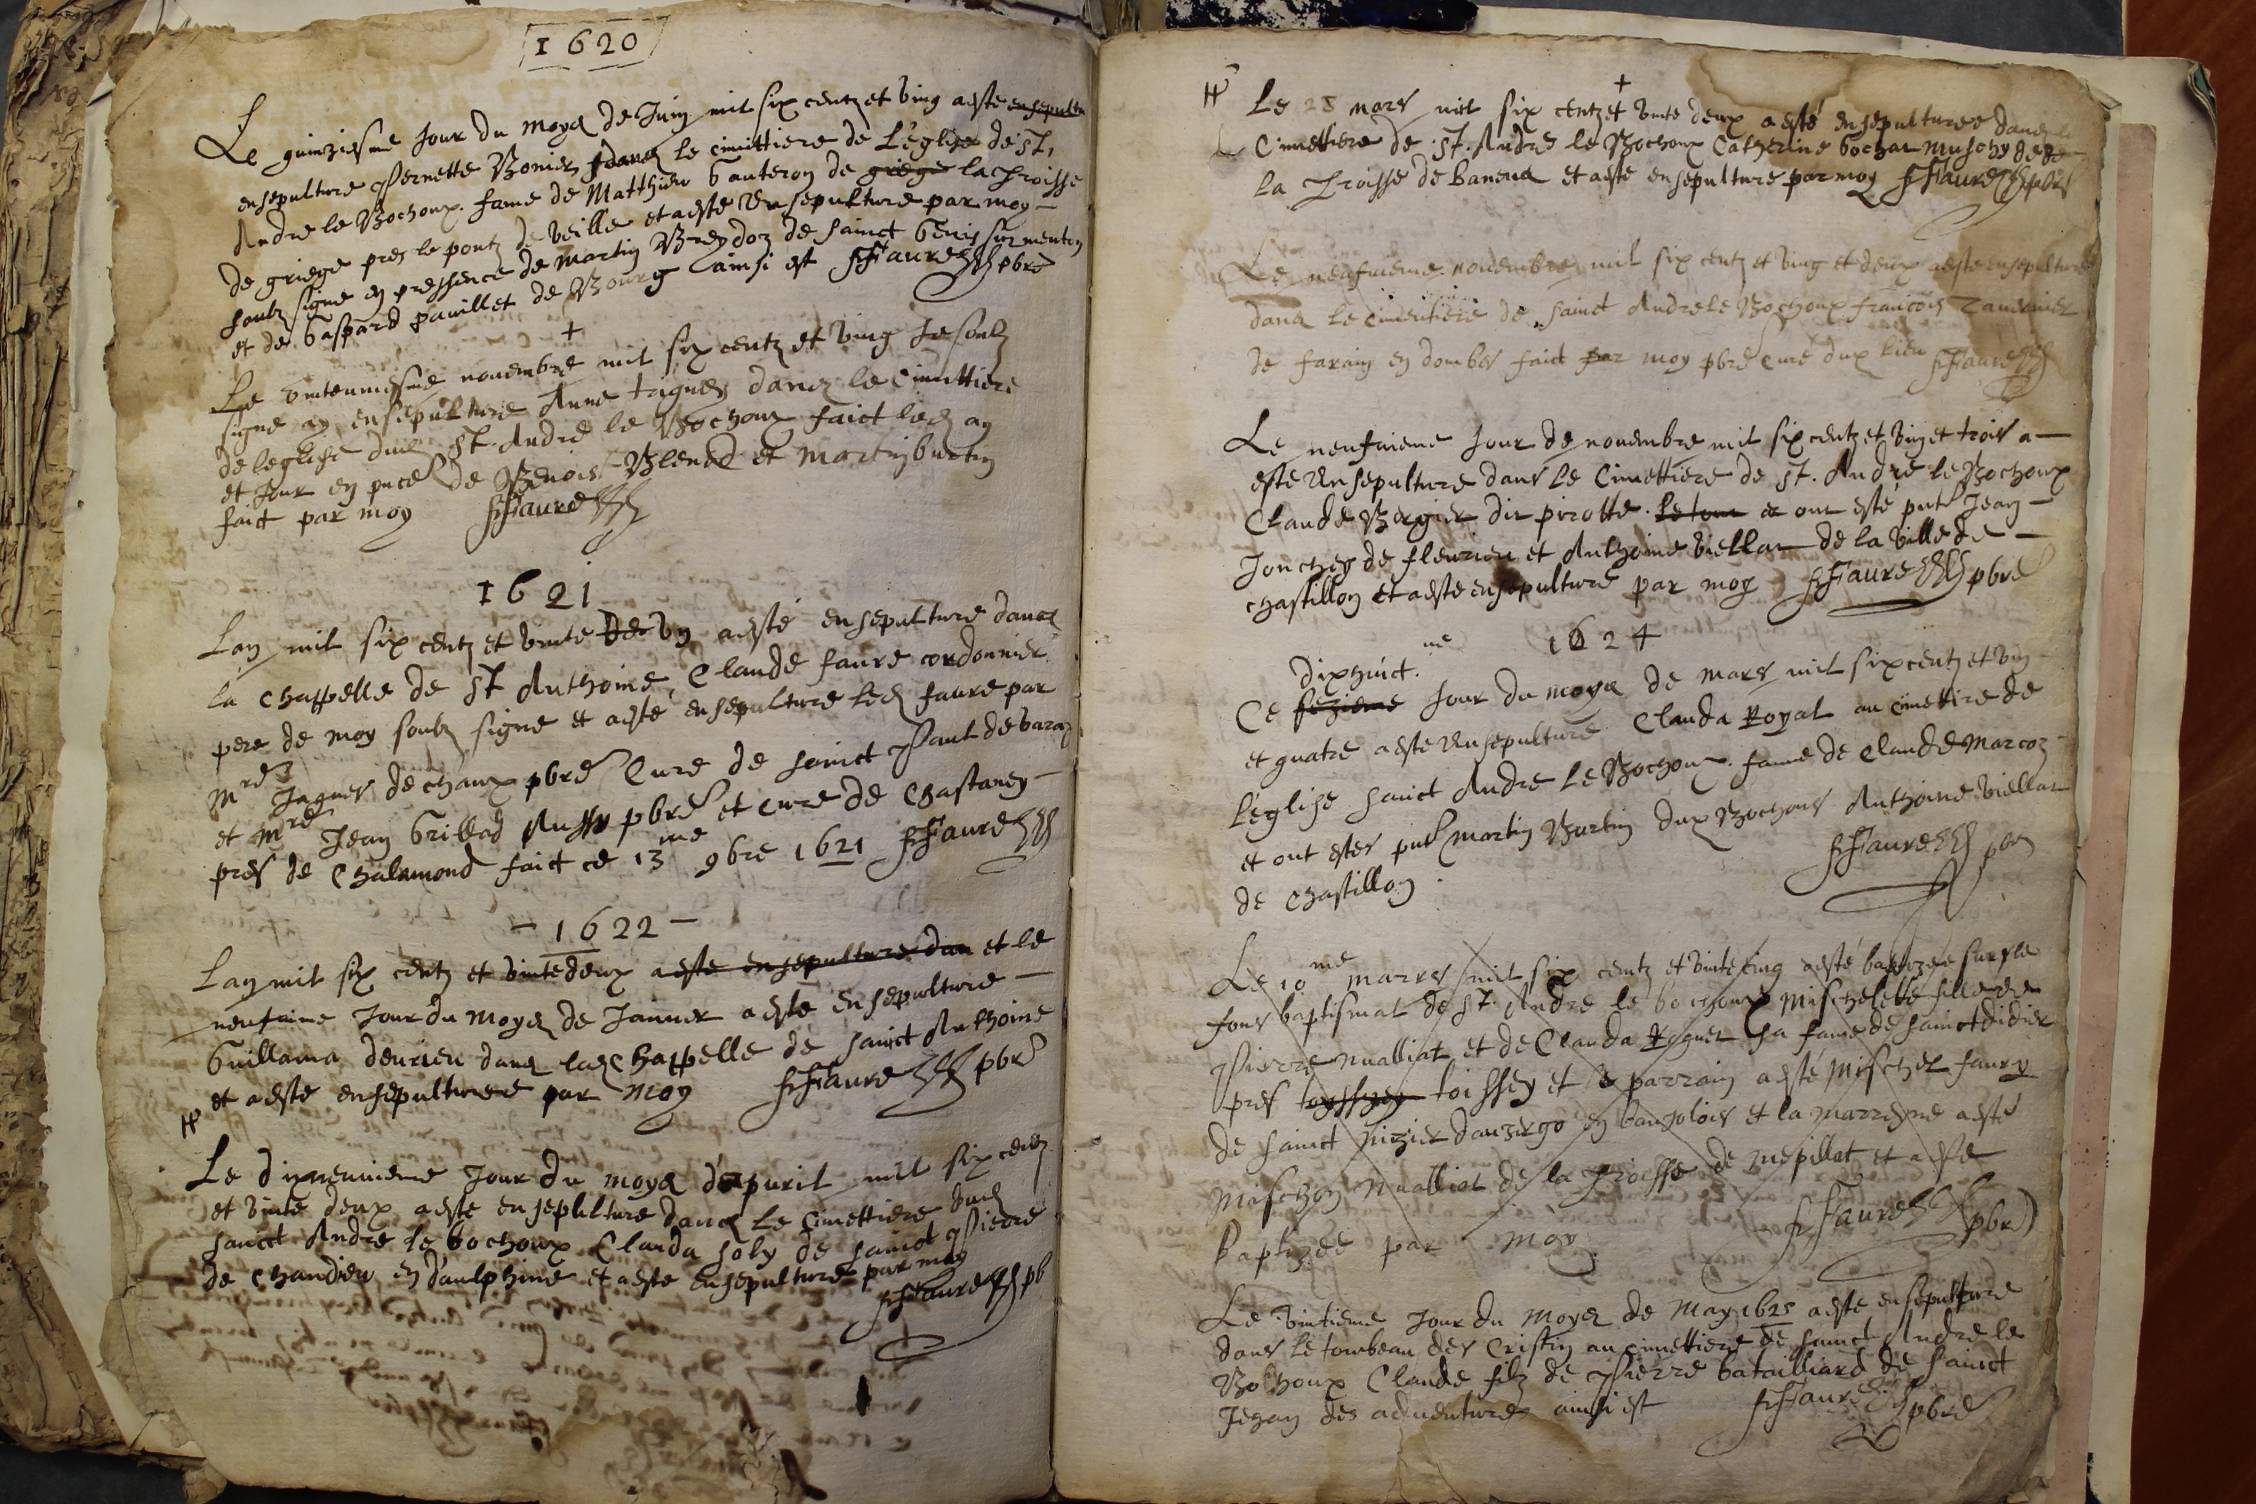 1620
Le quinziesme Jour du moys de Juin mil six centz et ving aeste ensepultu
ensepulture Pernette Boniez dans le cimittiere de L'eglise de St.
Andre le Bochoux. fame de Matthieu Gauteron de griege la Proisse
de griege pres le pontz de veille et aeste Ensepulture par moy
soubz signe en pressence de martin Breydoz de sainct Genis sur menton
et de Gaspard pauillet de Bourg ainsi est FFaure pbre
Le vinteunviesme novembre mil six centz et ving Je soulz
signe ay ensepulture Anne taignes danz le Cimittiere
de leglise dud St. Andre le Bochoux faict led an
et Jour en pnce de Benoist Blenod et martin burtin
faict par moy FFaure
1621
Lan mil six centz et vinte Un aesté ensepulture dans
la chappelle de St Anthoine Claude faure cordonnier
pere de moy soubz signe et aesté ensepulture led faure par
mre Jaques de chaux pbre Cure de sainct Paul de varaz
et mre Jean Grillod Aussy pbre et cure de Chastaney
pres de Chalamond faict ce 13me 9bre 1621 FFaure
- 1622 -
Lan mil six centz et vinte deux aeste ensepulture dan et le
neufvime Jour du moys de Janvier aeste ensepulture
Guillama devrieu dans lad Chappelle de sainct Anthoine
et aeste ensepulturee par moy FFaure pbre
Le dixneuvieme Jour du moys d'apvril mil six centz
et vinte deux aeste ensepulture dans Le Cimettiere dud
sanct Andre le bochoux Clauda Joly de sainct Pierre
de Chandieu en daulphine et aeste ensepulture par moy
FFaure pb
Le 28 mars mil six centz et vinte deux aesté ensepulturee dans le
Cimettiere de St. Andre le Bochoux Catherine bochar
la Proisse de baneus et aeste ensepulture par moy FFaure pbre
Le neufvieme novembre mil six centz et ving et deux aeste ensepulture
dans le cimentiere de sainct Andre le Bochoux francois Tavernier
de farain en dombes faict par moy pbre curé dux lieu FFaure
Le neufvieme Jour de novembre mil six centz et vinget trois a
este Ensepulture dans le Cimettiere de St. Andre le Bochoux
Claude Bergier dit pirotte. et ont esté pnt Jean
Jonchey de fleurieu et Anthoine Viellar de la ville de
chastillon et aeste ensepulture par moy FFaure pbre
1624
dixhuict. me
Ce sezieme Jour du moys de mars mil six centz et vin
et quatre aeste Ensepulture Clauda Royat au cimettire de
L'eglise sanict Andre Le Bochoux. fame de Claude Marcoz
et ont estes pnt martin Burtin dux Bochous Anthoine Viellar
de Chastillon FFaure pbr
Le 10me marrs mil six centz et vinte cinq aesté baptizée sur le
fons baptismal de St. Andre le bochoux Mischelette fille de
Pierre nualliat et de Clauda Roguet sa fame de sainct didier
pres toissey et le parrain aesté Mischel faury
de sainct en baugolois et la marresne aesté
Mischon nualliat de la Proisse de mepillat et aeste
baptizée par moy FFaure pbre
Le Vintieme Jour du moys de May 1625 aeste ensepulture
dans le tombeau des Cristin au cimettiere de sainct Andre le
Bochoux Claude filz de Pierre batailliard de sainct
Jehan des adventures ainsi est FFaure pbre